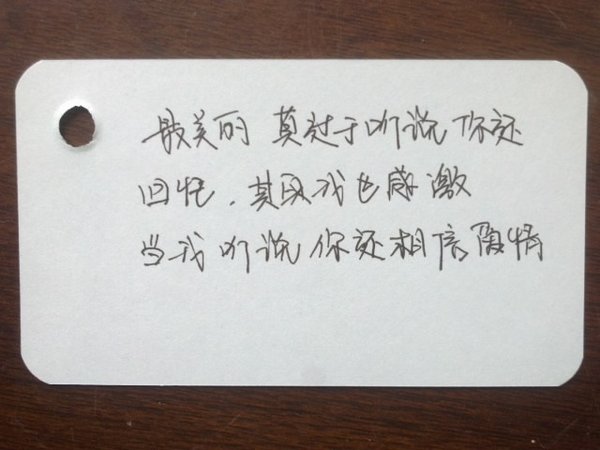 最美丽 莫过于听说你还
回忆,其实我也感激
当我听说你还相信爱情